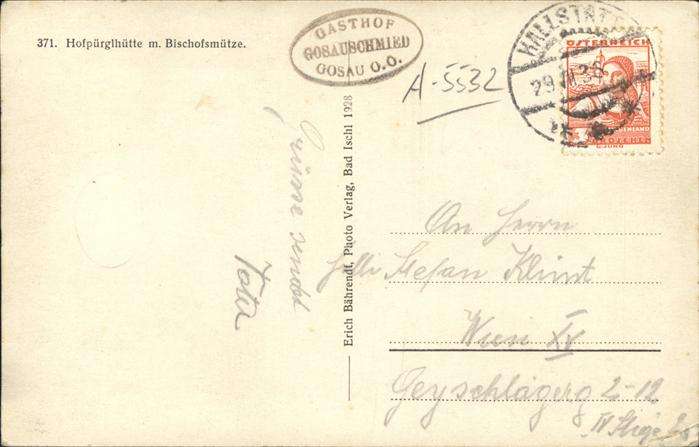 371. Hofpürglhütte m. Bischofsmütze.
GASTHOF
GOSAUSCHMIED
GOSAU O.Ö.
A-5532
HALLSTATT
29.VII.36
ÖSTERREICH
Grüsse sendet
Erich Bährendt, Photo Verlag, Bad Ischl 1928
An Herrn
Stefan Klint
Wien XV
Geyschlägerg 2-12
IV Stiege